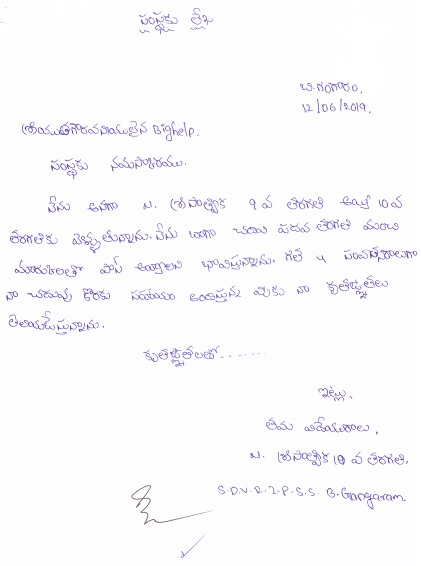 సంస్థకు లేఖ
బి.గంగారం,
12/06/2019.
శ్రీయుతగౌరవనీయులైన Bighelp.
సంస్థకు నమస్కారము.
నేను అనగా N. శ్రీసాత్విక 9 వ తరగతి అయ్యి 10 వ
తరగతికి వెళ్ళుతున్నాను. నేను బాగా చదివి పదవ తరగతి మంచి
మార్కులతో పాస్ అవ్వాలని భావిస్తున్నాను. గత 4 సంవత్సరాలుగా
నా చదువు కొరకు సహాయం అందిస్తున్న మీకు నా కృతజ్ఞతలు
తెలియజేస్తున్నాను.
కృతజ్ఞతలతో.......
ఇట్లు,
తమ విధేయురాలు,
N. శ్రీసాత్విక 10 వ తరగతి.
S.D.V.R.Z.P.S.S. B-Gangaram